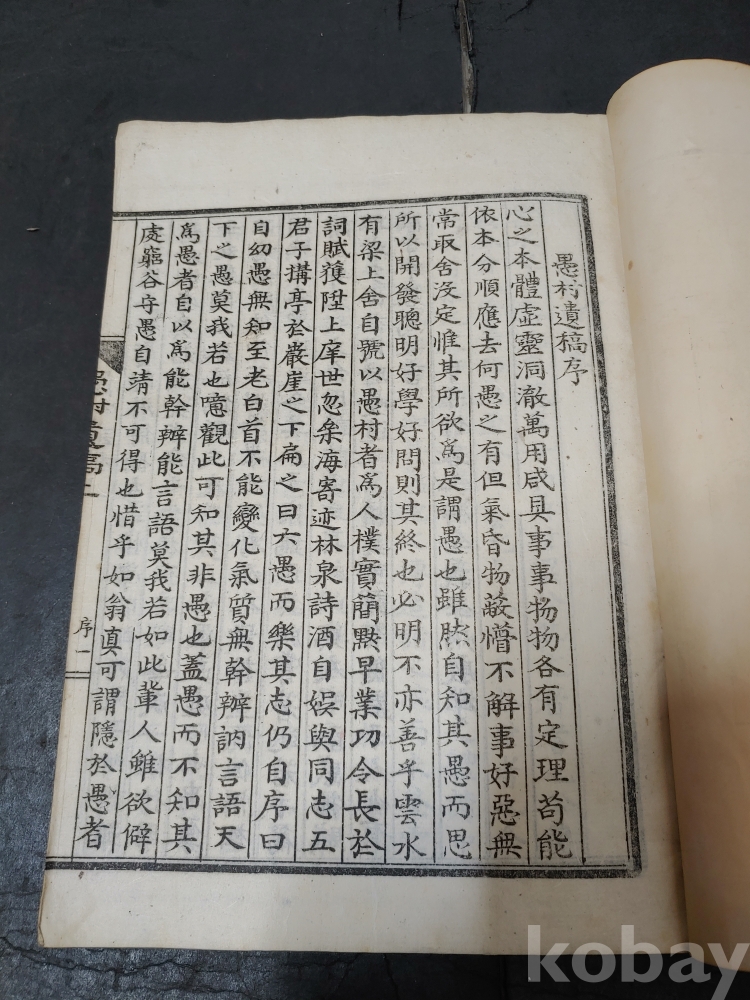 愚村遺稿序
心之本體虛靈洞澈萬用咸具事事物物各有定理苟能
依本分順應去何愚之有但氣昏物蔽懵不解事好惡無
常取舍沒定惟其所欲爲是謂愚也雖然自知其愚而思
所以開發聰明好學好問則其終也必明不亦善乎雲水
有梁上舍自號以愚村者爲人樸實簡默早業功令長於
詞賦獲陞上庠世忽枲海寄迹林泉詩酒自娛與同志五
君子搆亭於巖崖之下扁之曰六愚而樂其志仍自序曰
自幼愚無知至老白首不能變化氣質無幹辦訥言語天
下之愚莫我若也噫觀此可知其非愚也蓋愚而不知其
爲愚者自以爲能幹辦能言語莫我若如此輩人雖欲僻
處窮谷守愚自靖不可得也惜乎如翁眞可謂隱於愚者
愚村遺稿上
序一
kobay